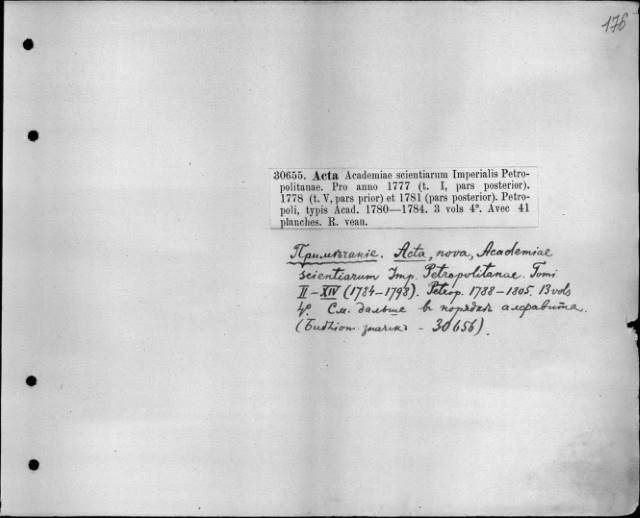 176
30655. Acta Academiae scientiarum Imperialis Petro-
politanae. Pro anno 1777 (t. I, pars posterior).
1778 (t. V, pars prior) et 1781 (pars posterior). Petro-
poli, typis Acad. 1780—1784. 3 vols 4°. Avec 41
planches. R. veau.
Примѣчаніе. Acta, nova, Academiae
scientiarum Imp. Petropolitanae. Tomi
II–XIV (1784–1798). Petrop. 1788–1805. 13 vols
4°. См. дальше въ порядкѣ алфавита.
(значекъ - 30656).